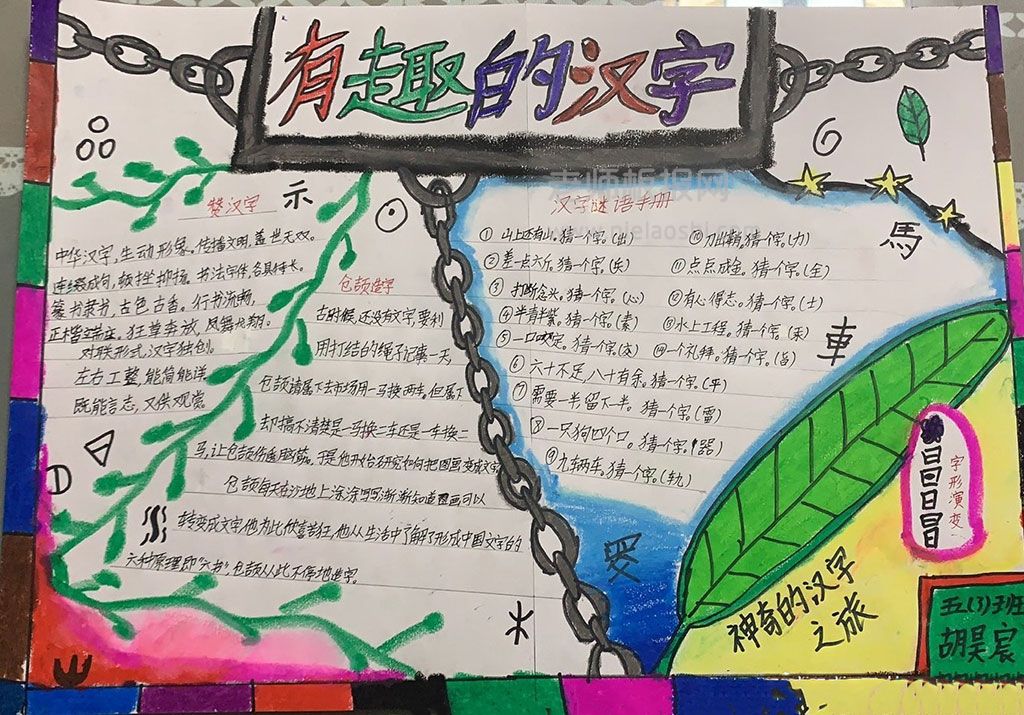 有趣的汉字
老师板报网
www.pielaoshi.com
示
赞汉字
中华汉字,生动形象。传播文明,盖世无双。
连缀成句,顿挫抑扬。书法字体,各具特长。
篆书隶书,古色古香。行书流畅,
正楷端庄。狂草奔放,凤舞龙翔。
对联形式,汉字独创。
左右工整,能简能详。
既能言志,又供观赏。
仓颉造字
古时候,还没有文字,要利
用打结的绳子记事一天
仓颉请属下去市场用一马换两车。但属下
却搞不清楚是一马换二车还是一车换二
马,让仓颉伤透脑筋。于是他开始研究如何把图画变成文字
仓颉每天在沙地上涂涂写写渐渐知道图画可以
转变成文字,他为此欣喜若狂,他从生活中了解了形成中国文字的
六种原理即“六书”。仓颉从此不停地造字。
汉字谜语手册
① 山上还有山。猜一个字。(出)
② 差一点六斤。猜一个字。(兵)
③ 打断念头。猜一个字。(心)
④ 半青半紫。猜一个字。(素)
⑤ 一口咬定。猜一个字。(交)
⑥ 六十不足,八十有余。猜一个字。(平)
⑦ 需要一半,留下一半。猜一个字。(雷)
⑧ 一只狗四个口。猜一个字。(器)
⑨ 九辆车,猜一个字。(轨)
⑩ 刀出鞘,猜一个字。(力)
⑪ 点点成金。猜一个字。(全)
⑫ 有心得志。猜一个字。(士)
⑬ 水上工程。猜一个字。(汞)
⑭ 一个礼拜。猜一个字。(旨)
馬
車
字形演变
神奇的汉字
之旅
五(3)班
胡昊宸